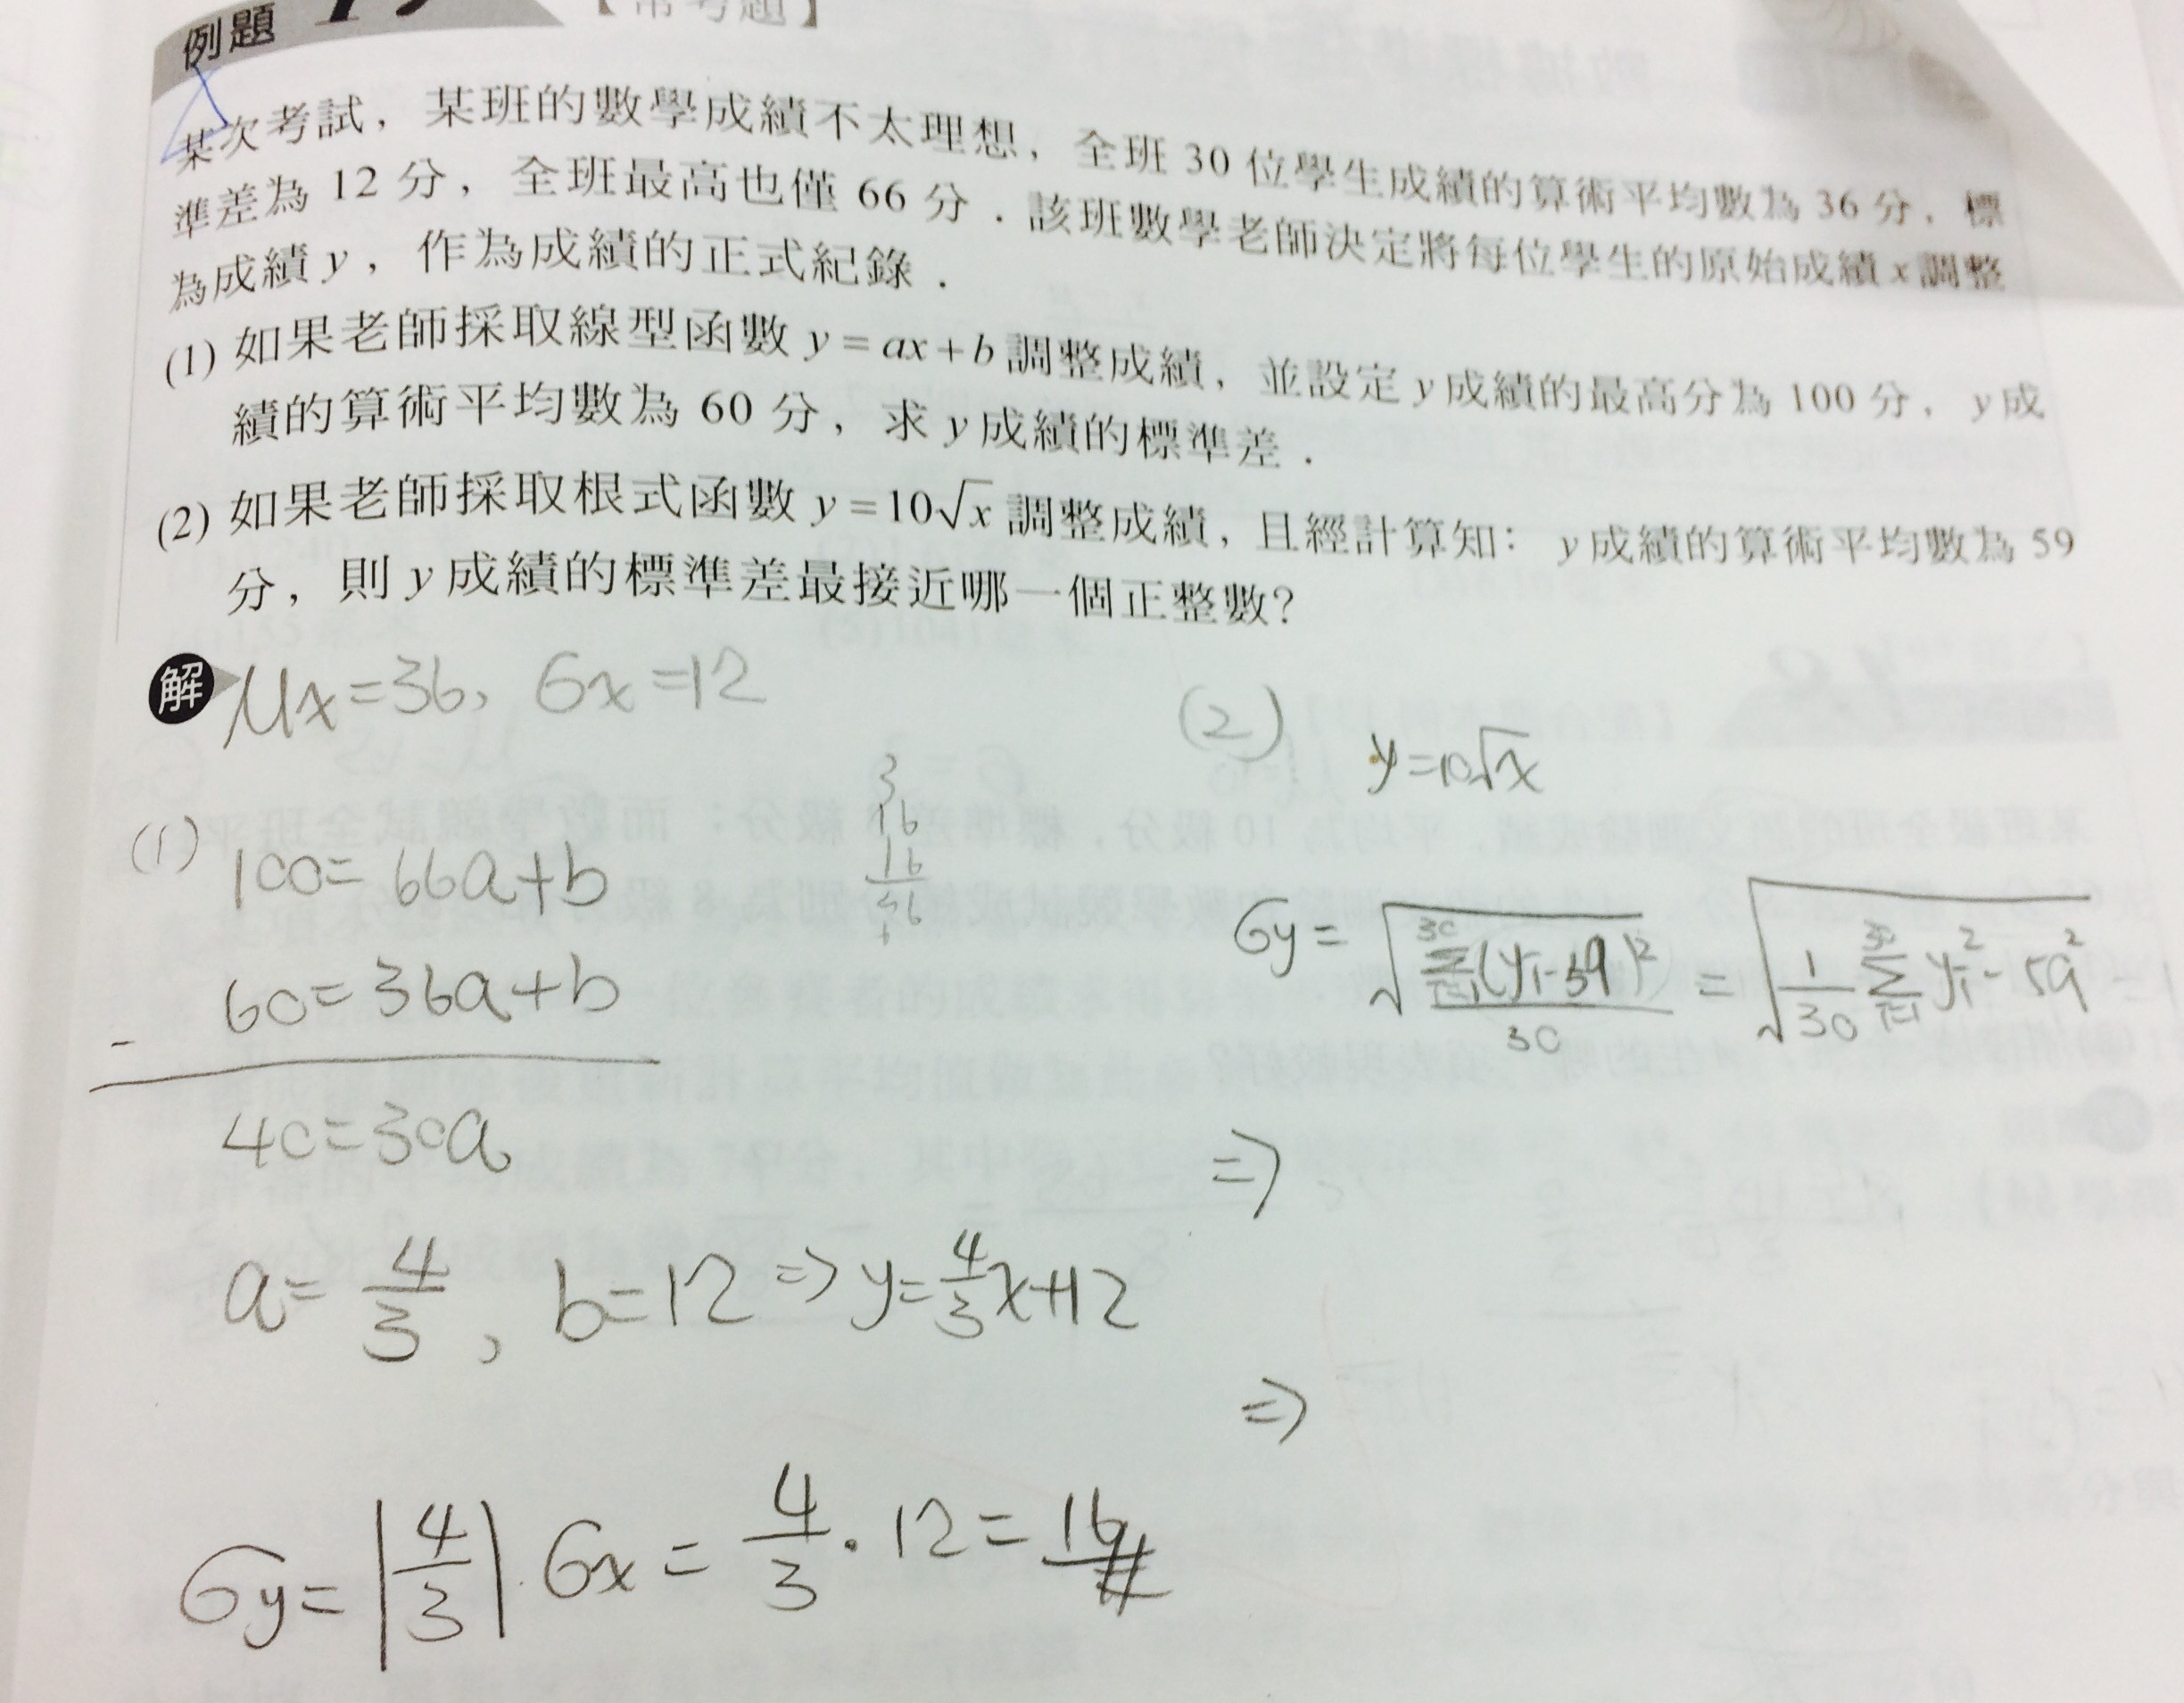 例題
【常考題】
某次考試，某班的數學成績不太理想，全班 30 位學生成績的算術平均數為 36 分，標
準差為 12 分，全班最高也僅 66 分．該班數學老師決定將每位學生的原始成績 x 調整
為成績 y，作為成績的正式紀錄．
(1) 如果老師採取線型函數 y = ax + b 調整成績，並設定 y 成績的最高分為 100 分，y 成
績的算術平均數為 60 分，求 y 成績的標準差．
(2) 如果老師採取根式函數 y = 10√x 調整成績，且經計算知：y 成績的算術平均數為 59
分，則 y 成績的標準差最接近哪一個正整數？
解 μx = 36, σx = 12
(1) 100 = 66a + b
60 = 36a + b
-
40 = 30a
a = 4/3, b = 12 ⇒ y = 4/3 x + 12
σy = |4/3| · σx = 4/3 · 12 = 16 #
3
16
16
(2) y = 10√x
σy = √(Σ_{i=1}^{30} (yi - 59)² / 30) = √(1/30 Σ_{i=1}^{30} yi² - 59²)
⇒
⇒